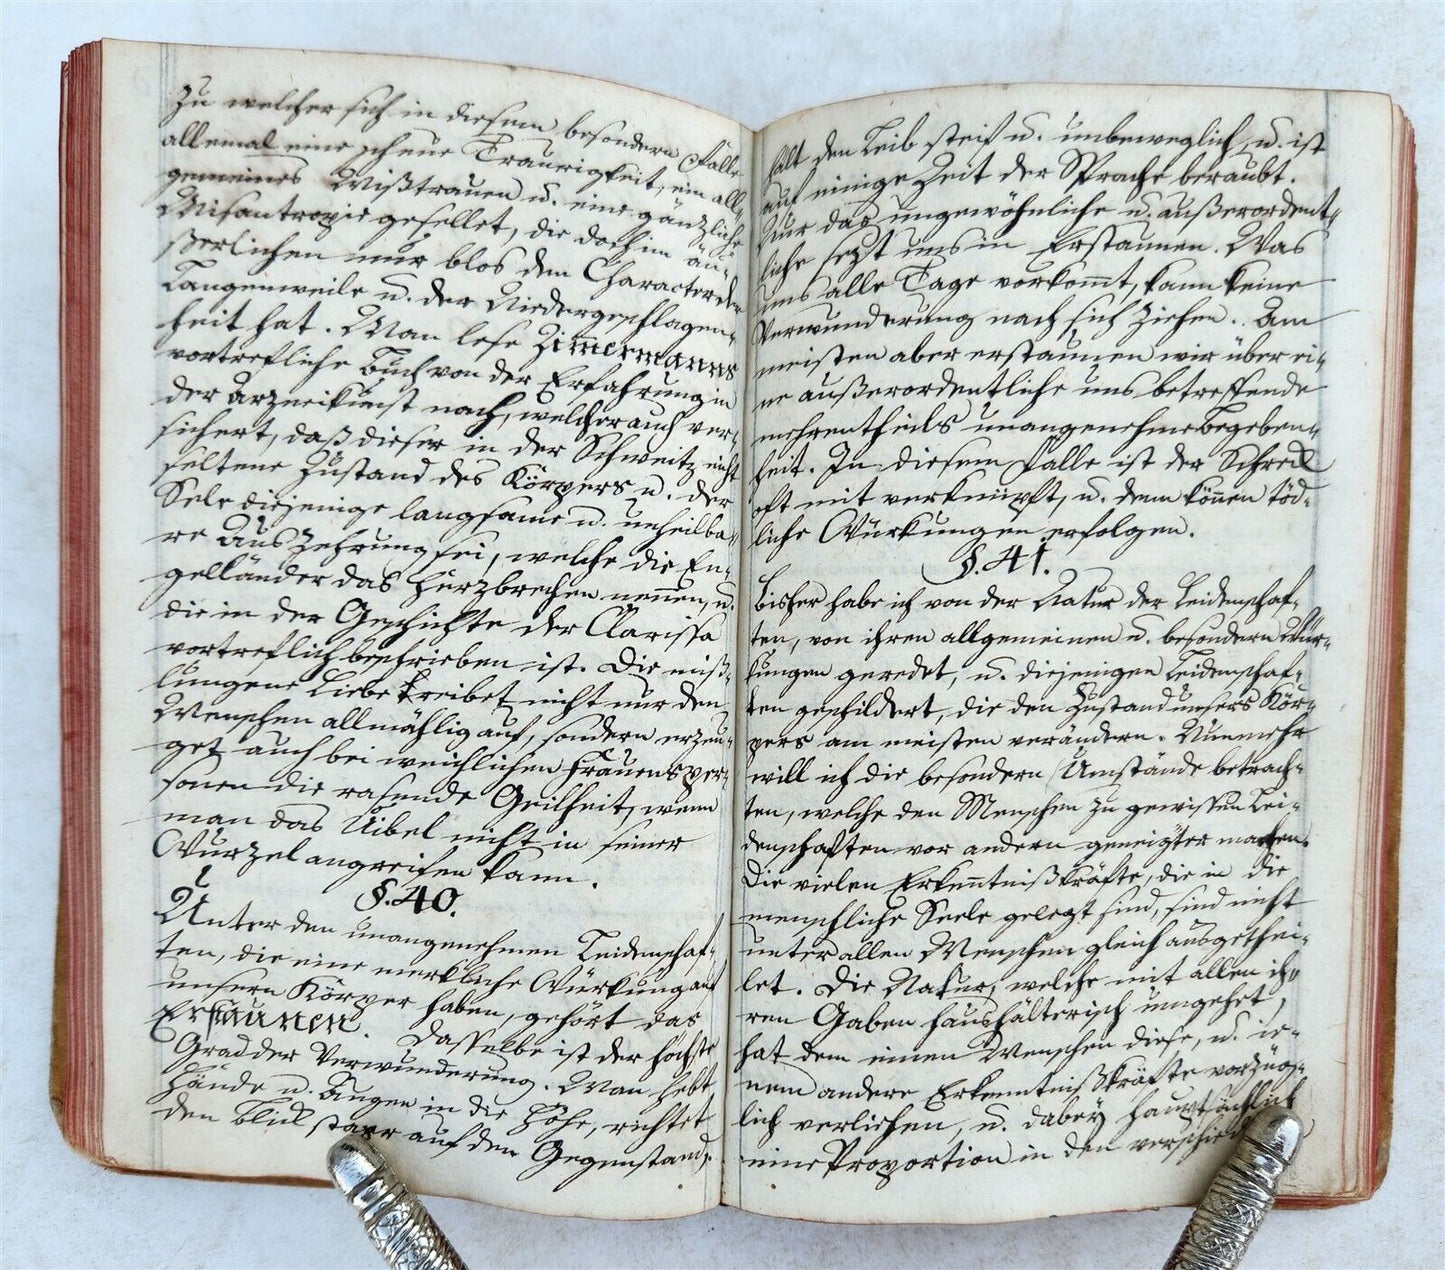 zu welcher sich in diesem besondern Falle
allemal eine scheue Traurigkeit, ein all-
gemeines Mißtrauen u. eine gänzliche
Misantropie gesellet, die doch im äu-
ßerlichen nur blos den Character der
Langenweile u. der Niedergeschlagen-
heit hat. Man lese Zimmermanns
vortrefliche Buch von der Erfahrung in
der Arzneikunst nach, welcher auch ver-
sichert, daß dieser in der Schweitz nicht
seltene Zustand des Körpers u. der
Sele diejenige langsame u. unheilba-
re Auszehrung sei, welche die En-
gelländer das Herzbrechen nennen, u.
die in der Geschichte der Clarissa
vortreflich beschrieben ist. Die miß-
lungene Liebe treibet nicht nur den
Menschen allmählig auf, sondern erzeu-
get auch bei weichlichen Frauensper-
sonen die rasende Geilheit, wenn
man das Uibel nicht in seiner
Wurzel angreifen kann.
§. 40.
Unter den unangenehmen Leidenschaf-
ten, die eine merkliche Würkung auf
unsern Körper haben, gehört das
Erstaunen. Dasselbe ist der höchste
Grad der Verwunderung. Man hebt
Hände u. Augen in die Höhe, richtet
den Blick starr auf den Gegenstand,
hält den Leib steif u. unbeweglich, u. ist
auf einige Zeit der Sprache beraubt.
Nur das ungewöhnliche u. außerordent-
liche sezt uns in Erstaunen. Was
uns alle Tage vorkomt, kann keine
Verwunderung nach sich ziehen. Am
meisten aber erstaunen wir über ei-
ne außerordentliche uns betreffende
mehrentheils unangenehme Begeben-
heit. In diesem Falle ist der Schreck
oft mit verknüpft, u. dann können töd-
liche Würkungen erfolgen.
§. 41.
Bisher habe ich von der Natur der Leidenschaf-
ten, von ihren allgemeinen u. besondern Wür-
kungen geredet, u. diejenigen Leidenschaf-
ten geschildert, die den Zustand unsers Kör-
pers am meisten verändern. Nunmehr
will ich die besondern Umstände betrach-
ten, welche den Menschen zu gewissen Lei-
denschaften vor andern geneigter machen.
Die vielen Erkenntnißkräfte, die in die
menschliche Seele gelegt sind, sind nicht
unter allen Menschen gleich ausgethei-
let. Die Natur, welche mit allen ih-
ren Gaben haushälterisch umgehet,
hat dem einen Menschen diese, u. je-
nem andere Erkenntnißkräfte vorzüg-
lich verliehen, u. dabey hauptsächlich
eine Proportion in den